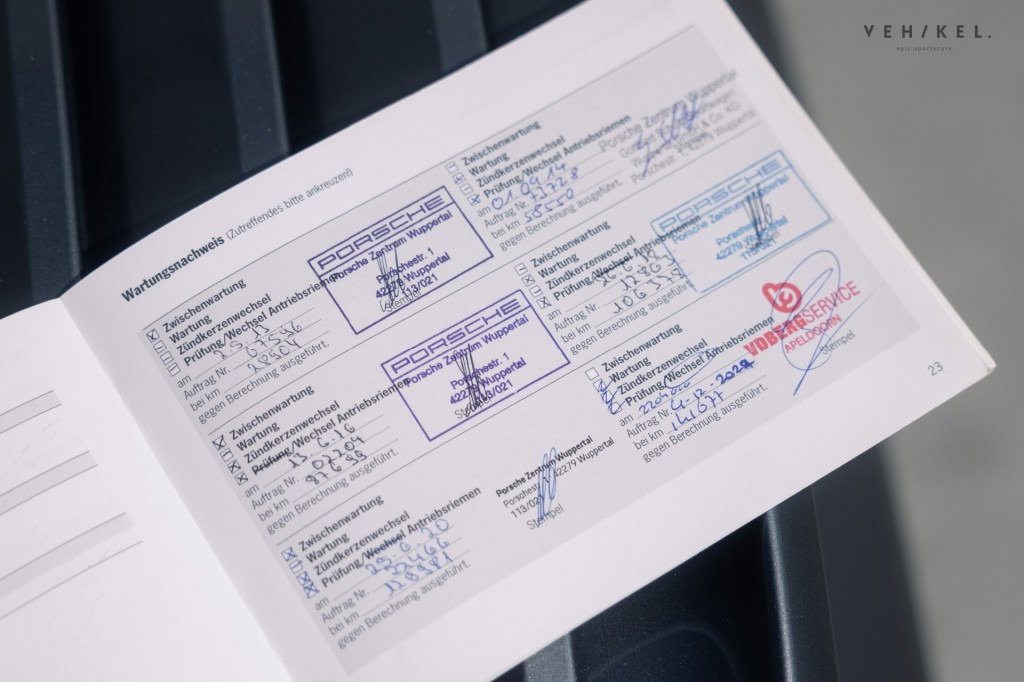 VEH/KEL.
epic sportscars.
Wartungsnachweis (Zutreffendes bitte ankreuzen!)
Zwischenwartung
Wartung
Zündkerzenwechsel
Prüfung/Wechsel Antriebsriemen
am
Auftrag Nr.
bei km
gegen Berechnung ausgeführt.
PORSCHE
Porsche Zentrum Wuppertal
Porschestr. 1
42279 Wuppertal
113/021
Stempel
Zwischenwartung
Wartung
Zündkerzenwechsel
Prüfung/Wechsel Antriebsriemen
am 01.09.14
Auftrag Nr. 72728
bei km 58550
gegen Berechnung ausgeführt.
Porsche Zentrum Wuppertal
Porschestr. 1, 42279 Wuppertal
Zwischenwartung
Wartung
Zündkerzenwechsel
Prüfung/Wechsel Antriebsriemen
am 13.6.16
Auftrag Nr. 02204
bei km 87698
gegen Berechnung ausgeführt.
PORSCHE
Porsche Zentrum Wuppertal
Porschestr. 1
42279 Wuppertal
113/021
Zwischenwartung
Wartung
Zündkerzenwechsel
Prüfung/Wechsel Antriebsriemen
am
Auftrag Nr.
bei km
gegen Berechnung ausgeführt.
PORSCHE
Porsche Zentrum Wuppertal
42279 Wuppertal
113/021
Zwischenwartung
Wartung
Zündkerzenwechsel
Prüfung/Wechsel Antriebsriemen
am 29.6.20
Auftrag Nr. 22466
bei km 118981
gegen Berechnung ausgeführt.
Porsche Zentrum Wuppertal
Porschestr. 42279 Wuppertal
113/021
Stempel
Zwischenwartung
Wartung
Zündkerzenwechsel
Prüfung/Wechsel Antriebsriemen
am
Auftrag Nr. 4-12-2022
bei km 141677
gegen Berechnung ausgeführt.
VDBERGSERVICE
APELDOORN
Stempel
23